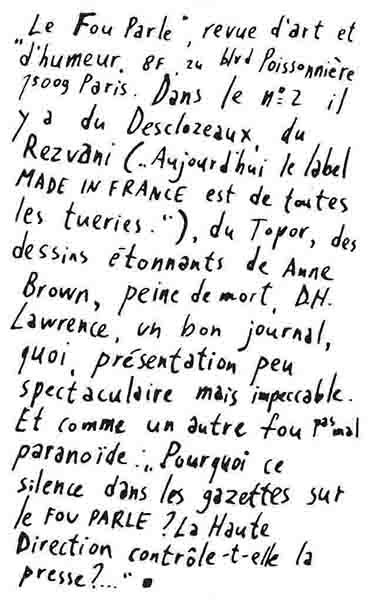 "Le Fou Parle", revue d'art et
d'humeur. 8F, 24 blvd Poissonnière
75009 Paris. Dans le n°2 il
y a du Desclozeaux, du
Rezvani ("Aujourd'hui le label
MADE IN FRANCE est de toutes
les tueries."), du Topor, des
dessins étonnants de Anne
Brown, peine de mort, D.H.
Lawrence, un bon journal,
quoi, présentation peu
spectaculaire mais impeccable.
Et comme un autre fou pas mal
paranoïde : "Pourquoi ce
silence dans les gazettes sur
le FOU PARLE ? La Haute
Direction contrôle-t-elle la
presse?..."